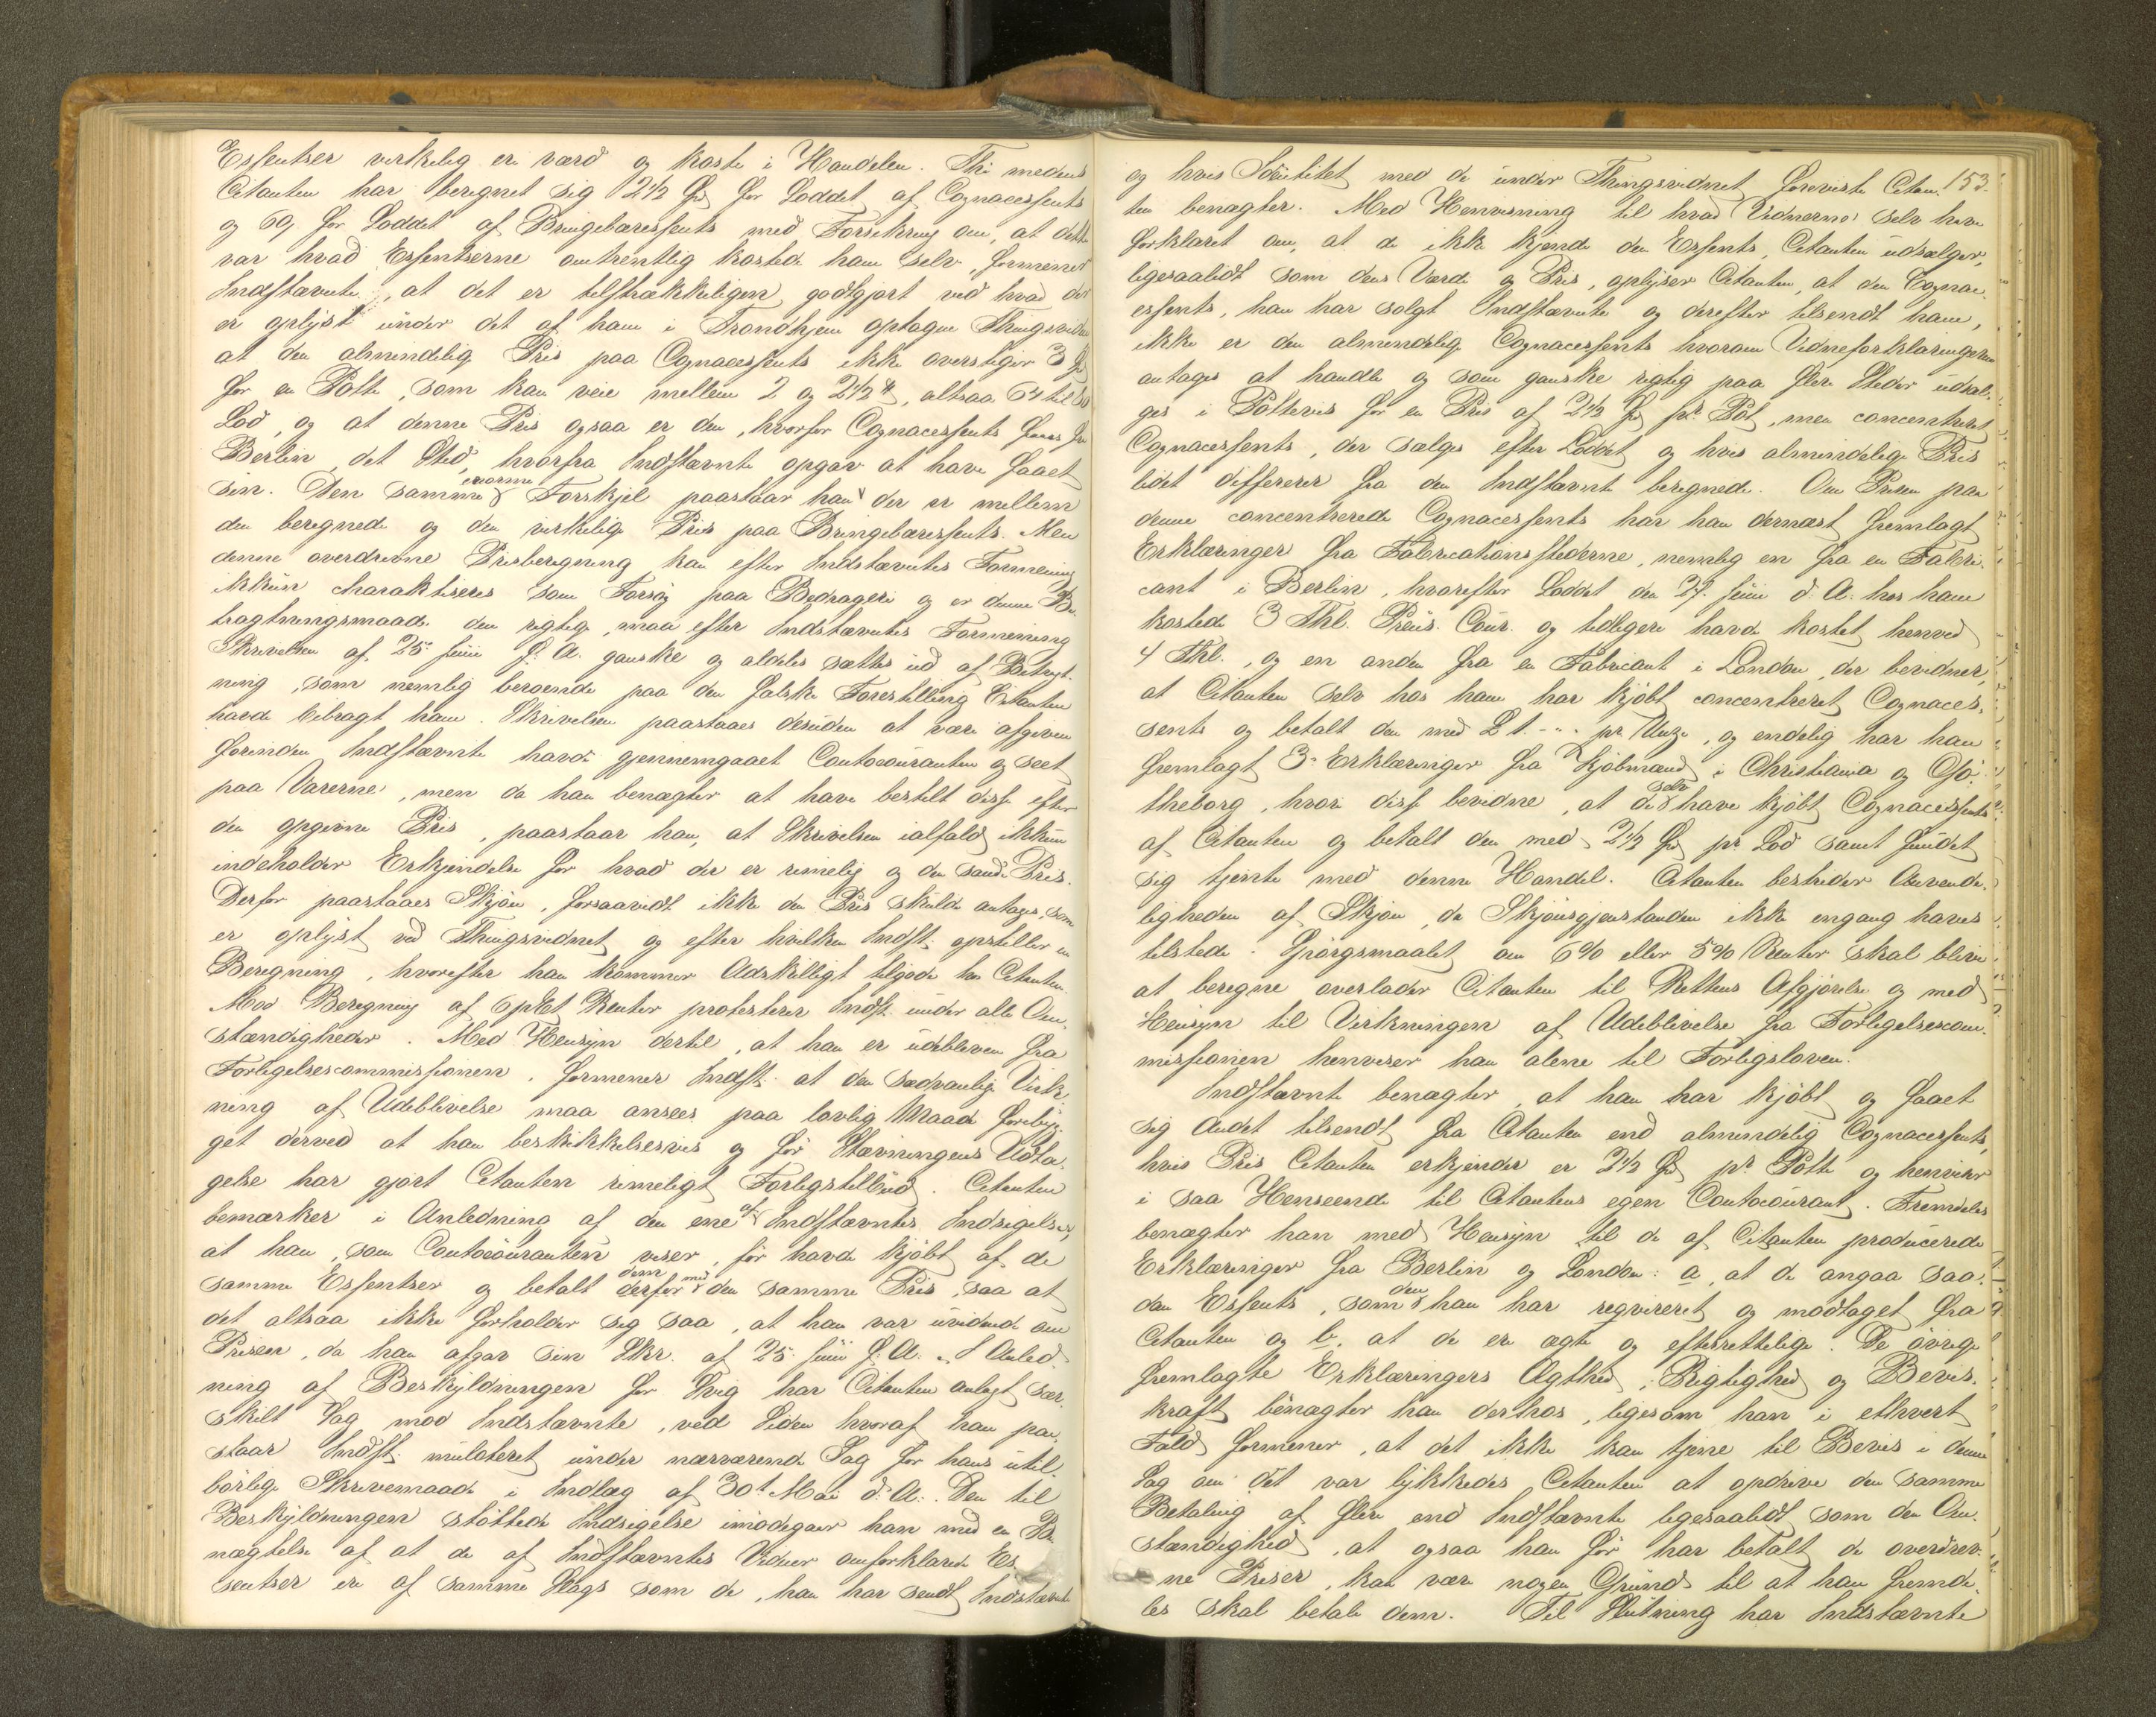 Essentser virkelig er værd og koste i Handelen. Thi medens
Citanten har beregnet sig 2 1/2 for Loddet af Cognacessents
og 60 for Loddet af Bringebæressents med Forsikring om, at dette
var hvad Essentserne omtrentlig kostede ham selv, formener
Indstævnte, at det er tilstrækkeligen godtgjort ved hvad der
er oplyst under det af ham i Trondhjem optagne Thingsvidne
at den almindelig Pris paa Cognacessents ikke overstiger 3
for en Potte, som kan veie mellem 2 og 2 1/2 ℔, altsaa 64 til 80
Lod, og at denne Pris ogsaa er den, hvorfor Cognacessents faaes fra
Berlin, det Sted, hvorfra Indstævnte opgav at have faaet
sin. Den samme enorme Forskjel paastaar han der er mellem
den beregnede og den virkelige Pris paa Bringebæressents. Men
denne overdrevne Prisberegning kan efter Indstævntes Formening
ikkun charakteriseres som Forsøg paa Bedrageri og er denne Be-
tragtningsmaade den rigtige, maa efter Indstævntes Formening
Skrivelsen af 25 Juni f. A. ganske og aldeles sættes ud af Betragt-
ning, som nemlig beroende paa den falske Forestilling Citanten
havde bibragt ham. Skrivelsen paastaaes desuden at være afgiven
forinden Indstævnte havde gjennemgaaet Contocouranten og seet
paa Varerne, men da han benægter at have bestilt disse efter
den opgivne Pris, paastaar han, at Skrivelsen ialfald ikkun
indeholder Erkjendelse for hvad der er rimelig og den sande Pris.
Derfor paastaaes Skjøn, forsaavidt ikke den Pris skulde antages, som
er oplyst ved Thingsvidnet og efter hvilken Indst. opstiller en
Beregning, hvorefter han kommer Adskilligt tilgode hos Citanten.
Mod Beregning af 6 pCt Renter protesterer Indst. under alle Om-
stændigheder. Med Hensyn dertil, at han er udebleven fra
Forligelsescommissionen, formener Indst. at den sædvanlige Virk-
ning af Udeblivelse maa ansees paa lovlig Maade forebyg-
get derved at han beskikkelsesvis og før Stævningens Udta-
gelse har gjort Citanten rimeligt Forligstilbud. Citanten
bemærker i Anledning af den ene af Indstævntes Indsigelser,
at han, som Contocouranten viser, før havde kjøbt af de
samme Essentser og betalt dem derfor med den samme Pris, saa at
det altsaa ikke forholder sig saa, at han var uvidende om
Prisen, da han afgav sin Skr. af 25 Juni f. A. I Anled-
ning af Beskyldningen for Svig har Citanten anlagt sær-
skilt Sag mod Indstævnte, ved Siden hvoraf han paa-
staar Indst. mulcteret under nærværende Sag for hans util-
børlige Skrivemaade i Indlæg af 30te Mai d. A. Den til
Beskyldningen støttede Indsigelse imødegaaer han med en Be-
nægtelse af at de af Indstævntes Vidner omforklarede Es-
sentser er af samme Slags som de, han har sendt Indstævnte
153
og hvis Identitet med de under Thingsvidnet foreviste Citan-
ten benægter. Med Henvisning til hvad Vidnerne selv have
forklaret om, at de ikke kjende den Essents, Citanten udsælger,
ligesaalidt som dens Værd og Pris, oplyser Citanten, at den Cognac-
essents, han har solgt Indstævnte og derefter tilsendt ham,
ikke er den almindelige Cognacessents hvorom Vidneforklaringerne
antages at handle og som ganske rigtig paa flere Steder udsæl-
ges i Pottevis for en Pris af 2 1/2 pr. Pot, men concentreret
Cognacessents, der sælges efter Loddet og hvis almindelige Pris
lidet differerer fra den Indstævnte beregnede. Om Prisen paa
denne concentrerede Cognacessents har han dernæst fremlagt
Erklæringer fra Fabricationsstederne, nemlig en fra en Fabri-
cant i Berlin, hvorefter Loddet den 27. Juni d. A. hos ham
kostede 3 Thl. Preus. Cour. og tidligere havde kostet henved
4 Thl., og en anden fra en Fabricant i London, der bevidner,
at Citanten selv hos ham har kjøbt concentreret Cognaces-
sents og betalt den med £ 1. - " - pr. Unze, og endelig har han
fremlagt 3 Erklæringer fra Kjøbmænd i Christiania og Gø-
theborg, hvori disse bevidne, at de selv have kjøbt Cognacessents
af Citanten og betalt den med 2 1/2 pr. Lod samt fundet
sig tjente med denne Handel. Citanten bestrider Anvende-
ligheden af Skjøn, da Skjønsgjenstanden ikke engang haves
tilstede. Spørgsmaalet om 6% eller 5% Renter skal blive
at beregne overlader Citanten til Rettens Afgjørelse og med
Hensyn til Virkningen af Udeblivelse fra Forligelsescom-
missionen henviser han alene til Forligsloven.
Indstævnte benægter, at han har kjøbt og faaet
sig Andet tilsendt fra Citanten end almindelig Cognacessents,
hvis Pris Citanten erkjender er 2 1/2 pr. Potte og henviser
i saa Henseende til Citantens egen Contocourant. Fremdeles
benægter han med Hensyn til de af Citanten producerede
Erklæringer fra Berlin og London: a, at de angaa saa-
dan Essents, som den han har reqvireret og modtaget fra
Citanten og b. at de ere ægte og efterrettelige. De øvrige
fremlagte Erklæringers Ægthed, Rigtighed og Bevis-
kraft benægter han derhos, ligesom han i ethvert
Fald formener, at det ikke kan tjene til Bevis i denne
Sag om det var lykkedes Citanten at opdrive den samme
Betaling af flere end Indstævnte ligesaalidt som den Om-
stændighed, at ogsaa han før har betalt de overdrev-
ne Priser, kan være nogen Grund til at han fremde-
les skal betale dem. Til Slutning har Indstævnte